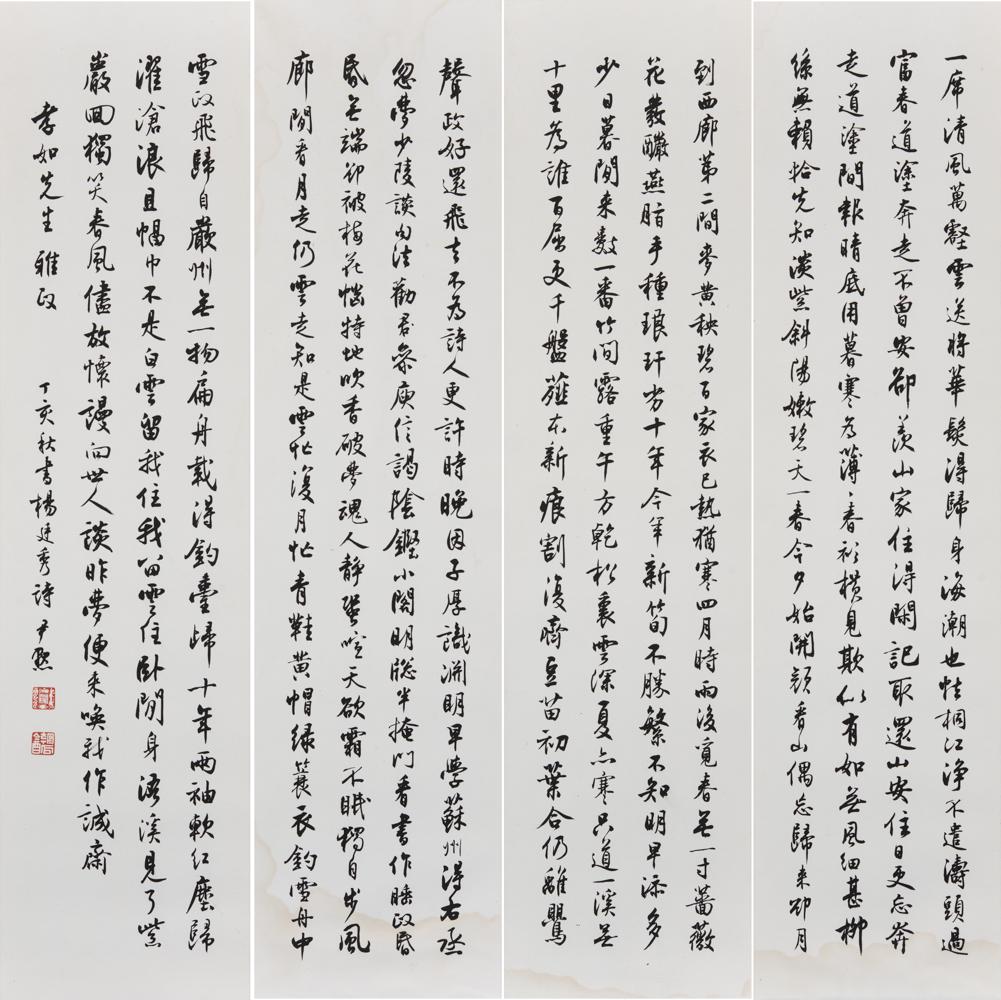 一席清風萬壑雲送將華髮得歸身海潮也怯桐江淨不遣濤頭過
富春道塗奔走不曾安卻羨山家住得閑記取還山安住日更忘奔
走道塗間報晴底用暮寒為薄薄春衫橫見欺似有如無風細甚柳
絲無賴拾先知淡紫斜陽嫩碧天一春今夕始開顏看山偶忘歸來卻月
到西廊第二間麥黃秧碧百家衣已熱猶寒四月時雨後覓春無一寸薔薇
花發釅燕脂手種琅玕劣十年今年新筍不勝繁不知明早添多
少日暮閒來數一番竹間露重午方乾松裏雲深夏亦寒只道一溪無
十里為誰百屈更千盤薤本新痕割復齊豆苗初葉合仍離鸎
聲政好還飛去不為詩人更許時晚因子厚識淵明早學蘇州得右丞
忽夢少陵談句法勸君參庾信謁陰鏗小閣明窗半掩門看書作睡政昏
昏無端卻被梅花惱特地吹香破夢魂人靜蛩喧天欲霜不眠獨自步風
廊閒看月走仍雲走知是雲忙復月忙青鞋黃帽綠蓑衣釣雪舟中
雪政飛歸自嚴州無一物扁舟載得釣臺歸十年兩袖軟紅塵歸
濯滄浪且幅巾不是白雲留我住我留雲住臥閒身浯溪見了紫
巖回獨笑春風儘放懷謾向世人談昨夢便來喚我作誠齋
孝如先生雅政
丁亥秋書楊廷秀詩尹默